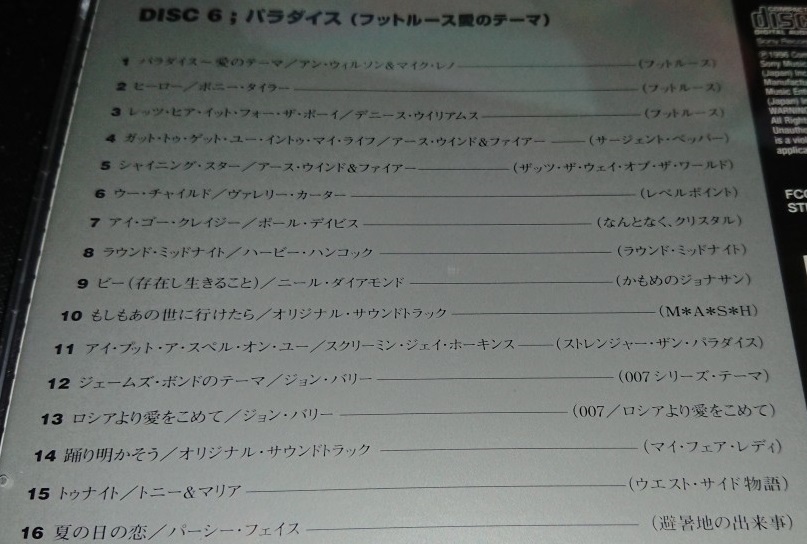 DISC 6 ; パラダイス (フットルース愛のテーマ)
1 パラダイス〜愛のテーマ/アン・ウィルソン&マイク・レノ (フットルース)
2 ヒーロー/ボニー・タイラー (フットルース)
3 レッツ・ヒア・イット・フォー・ザ・ボーイ/デニース・ウイリアムス (フットルース)
4 ガット・トゥ・ゲット・ユー・イントゥ・マイ・ライフ/アース・ウインド&ファイアー (サージェント・ペッパー)
5 シャイニング・スター/アース・ウインド&ファイアー (ザッツ・ザ・ウェイ・オブ・ザ・ワールド)
6 ウー・チャイルド/ヴァレリー・カーター (レベルポイント)
7 アイ・ゴー・クレイジー/ポール・デイビス (なんとなく、クリスタル)
8 ラウンド・ミッドナイト/ハービー・ハンコック (ラウンド・ミッドナイト)
9 ビー(存在し生きること)/ニール・ダイアモンド (かもめのジョナサン)
10 もしもあの世に行けたら/オリジナル・サウンドトラック (M*A*S*H)
11 アイ・プット・ア・スペル・オン・ユー/スクリーミン・ジェイ・ホーキンス (ストレンジャー・ザン・パラダイス)
12 ジェームズ・ボンドのテーマ/ジョン・バリー (007シリーズ・テーマ)
13 ロシアより愛をこめて/ジョン・バリー (007/ロシアより愛をこめて)
14 踊り明かそう/オリジナル・サウンドトラック (マイ・フェア・レディ)
15 トゥナイト/トニー&マリア (ウエスト・サイド物語)
16 夏の日の恋/パーシー・フェイス (避暑地の出来事)
COMPACT
disc
DIGITAL AUDIO
Sony Music
(Japan) Inc
(Japan)
WARNING
All Rights
is a
FCC